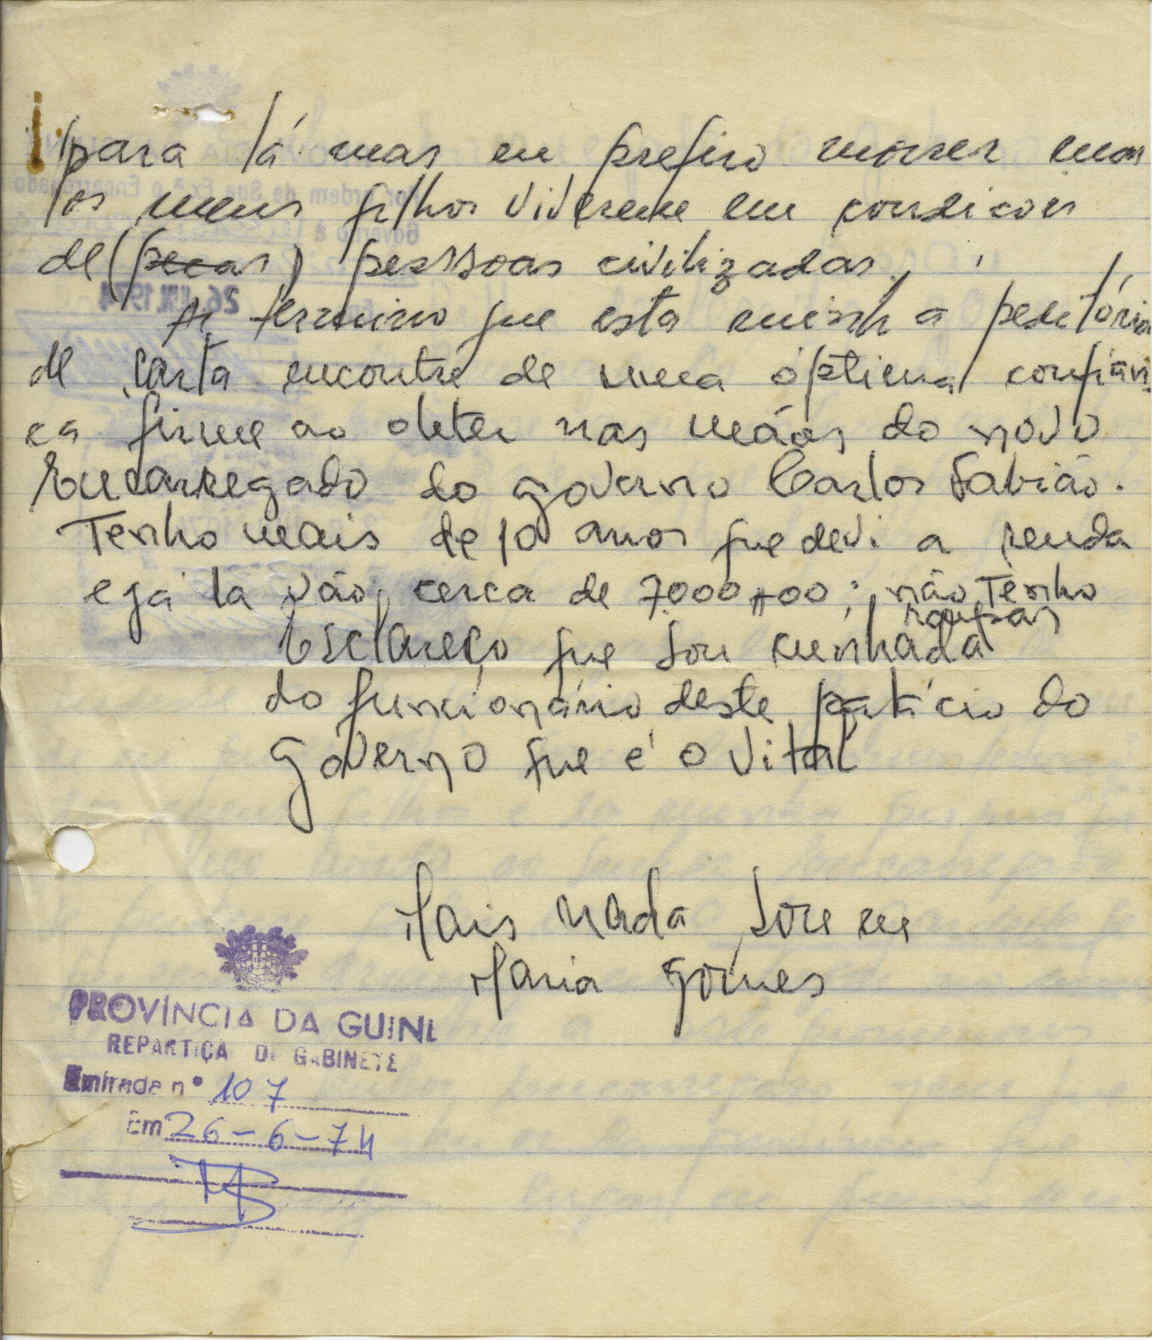 para lá mas eu prefiro morrer mas
os meus filhos viverem em condicoes
de (pecas) pessoas civilizadas.
Ai termino que esta minh a peditória
de carta encontre de uma óptima confian
ca firme ao obter nas mãos do novo
Encarregado do governo Carlos Fabião.
Tenho mais de 10 anos que devi a renda
e já la vão cerca de 7000$00; não Tenho
Esclareço que sou cunhada
do funcionário deste patácio do
governo que é o Vital
Mais nada sou eu
Maria Gomes
PROVÍNCIA DA GUINÉ
REPARTIÇÃ DE GABINETE
Entrada nº 107
Em 26-6-74